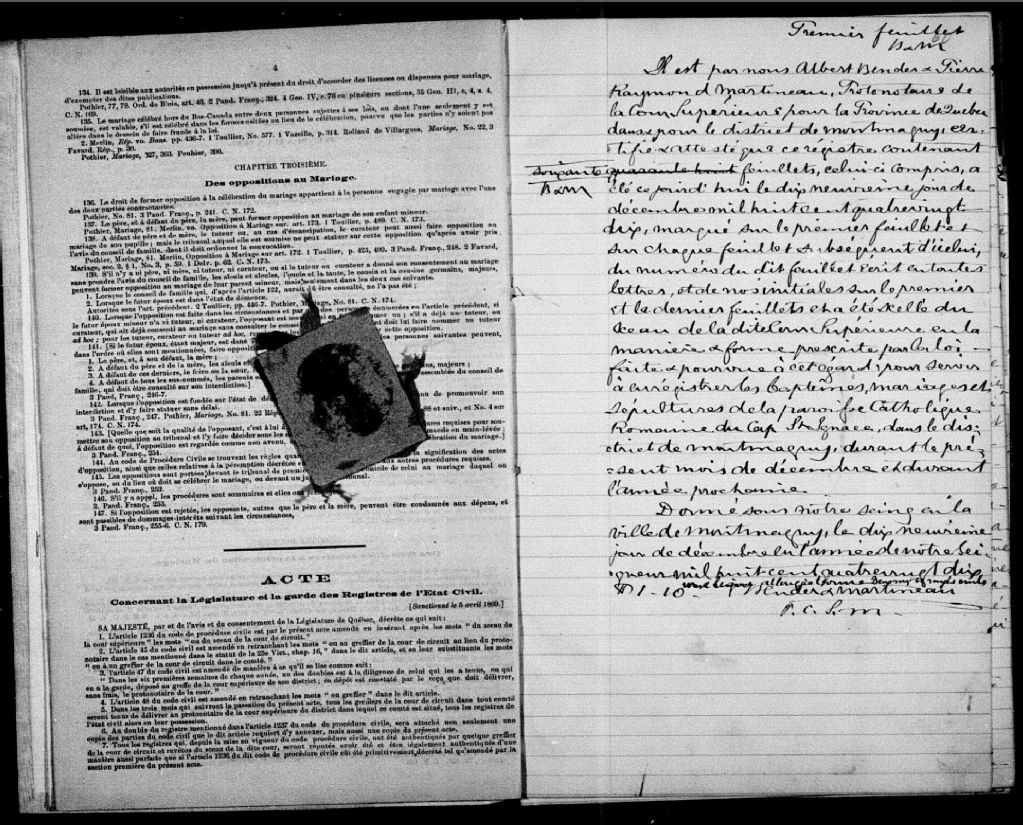 4
134. Il est loisible aux autorités en possession jusqu'à présent du droit d'accorder des licences ou dispenses pour mariage,
d'exempter des dites publications.
Pothier, 77, 78. Ord. de Blois, art. 40, 2 Pand. Franç., 324. 4 Geo. IV, c. 76 en plusieurs sections, 35 Geo. III, c, 4, s. 4,
C. N. 169.
135. Le mariage célébré hors du Bas-Canada entre deux personnes sujettes à ses lois, ou dont l'une seulement y est
soumise, est valable, s'il est célébré dans les formes usitées au lieu de la célébration, pourvu que les parties n'y soient pas
allées dans le dessein de faire fraude à la loi.
2. Merlin, Rép. vo. Bans. pp. 436-7. 1 Toullier, No. 577. 1 Vazeille, p. 314. Rolland de Villargues, Mariage, No. 22, 3
Favard, Rép., p. 30.
Pothier, Mariage, 327, 363. Pouhier, 390.
CHAPITRE TROISIÈME.
Des oppositions au Mariage.
136. Le droit de former opposition à la célébration du mariage appartient à la personne engagée par mariage avec l'une
des deux parties contractantes.
Pothier, No. 81. 3 Pand. Franç., p. 241. C. N. 172.
137. Le père, et à défaut du père, la mère, peut former opposition au mariage de son enfant mineur.
Pothier, Mariage, 81. Merlin. vo. Opposition à Mariage sur art. 173. 1 Toullier, p. 489. C. N. 173.
138. A défaut de père et de mère, le tuteur, ou, au cas d'émancipation, le curateur peut aussi faire opposition au
mariage de son pupille ; mais le tribunal auquel elle est soumise ne peut statuer sur cette opposition qu'après avoir pris
l'avis du conseil de famille, dont il doit ordonner la convocation.
Pothier, Mariage, 81. Merlin, Opposition à Mariage sur art. 172. 1 Toullier, p. 425, 490. 3 Pand. Franç., 248. 2 Favard,
Mariage, sec. 2, § 1, No. 3, p. 59. 1 Delv. p. 62. C. N. 175.
139. S'il n'y a ni père, ni mère, ni tuteur, ni curateur, ou si le tuteur ou curateur a donné son consentement au mariage
sans prendre l'avis du conseil de famille, les aïeuls et aïeules, l'oncle et la tante, le cousin et la cousine germains, majeurs,
peuvent former opposition au mariage de leur parent mineur, mais seulement dans les deux cas suivants.
1. Lorsque le conseil de famille qui, d'après l'article 122, aurait dû être consulté, ne l'a pas été ;
2. Lorsque le futur époux est dans l'état de démence.
Autorités sous l'art. précédent. 2 Toullier, pp. 446-7. Pothier, Mariage, No. 81. C. N. 174.
140. Lorsque l'opposition est faite dans les circonstances et par une des personnes énoncées en l'article précédent, si
le futur époux mineur n'a ni tuteur, ni curateur, l'opposant est tenu un ; s'il a déjà un tuteur, ou
curateur, qui ait déjà consenti au mariage sans consulter le conseil doit lui faire nommer un tuteur
ad hoc ; pour les tuteur, curateur ou tuteur ad hoc, cette opposition.
141. [Si le futur époux, étant majeur, est dans personnes suivantes peuvent,
dans l'ordre où elles sont mentionnées, faire opposition
1. Le père, et, à son défaut, la mère ;
2. A défaut du père et de la mère, les aïeuls majeurs ;
3. A défaut de ces derniers, le frère ou la sœur, assemblée du conseil de
4. A défaut de tous les sus-nommés, les parents
famille, qui doit être consulté sur son interdiction.]
3 Pand. Franç., 246-7.
142. Lorsque l'opposition est fondée sur l'état de dé de promouvoir son
interdiction et d'y faire statuer sans délai.
3 Pand. Franç., 247. Pothier, Mariage, No. 81. 22 Rép 88 et suiv., et No. 4 sur
art, 174. C. N. 174.
143. [Quelle que soit la qualité de l'opposant, c'est à lui à requises pour sou-
mettre son opposition au tribunal et l'y faire décider sous les demande en main-lévée :
à défaut de quoi, l'opposition est regardée comme non avenu, célébration du mariage.]
3 Pand. Franç., 254.
144. Au code de Procédure Civile se trouvent les règles qua signification des actes
d'opposition, ainsi que celles relatives à la péremption décrétée en autres procédures requises.
145. Les oppositions sont portées devant le tribunal de premiè domicile de celui au mariage duquel on
s'oppose, ou du lieu où doit se célébrer le mariage, ou devant un ju tribunal.
3 Pand. Franç., 253.
146. S'il y a appel, les procédures sont sommaires et elles ont
3. Pand. Franç., 253.
147. Si l'opposition est rejetée, les opposants, autres que le père et la mère, peuvent être condamnés aux dépens, et
sont passibles de dommages-intérêts suivant les circonstances,
3 Pand. Franç., 255-6. C. N. 179.
ACTE
Concernant la Législature et la garde des Registres de l'Etat Civil.
[Sanctionné le 5 avril 1869.]
SA MAJESTÉ, par et de l'avis et du consentement de la Législature de Québec, décrète ce qui suit :
1. L'article 1236 du code de procédure civile est par le présent acte amendé en insérant après les mots " du sceau de
la cour supérieure " les mots " ou du sceau de la cour de circuit."
2. L'article 45 du code civil est amendé en retranchant les mots " ou au greffier de la cour de circuit au lieu du proto-
notaire dans le cas mentionné dans le statut de la 25e Vict., chap. 16, " dans le dite article, et en leur substituants les mots
" ou à un greffier de la cour de circuit dans le comté. "
3. L'article 47 du code civil est amendé de manière à ce qu'il se lise comme suit :
" Dans les six premières semaines de chaque année, un des doubles est à la diligence de celui qui les a tenus, ou qui
en a la garde, déposé au greffe de la cour supérieure de son district ; ce dépôt est constaté par le reçu que doit délivrer,
sans frais, le protonotaire de la cour. "
4. L'article 48 du code civil est amendé en retranchant les mots " ou greffier " dans le dit article.
5. Dans les trois mois qui suivront la passation du présent acte, tous les greffiers de la cour de circuit dans tout comté
seront tenus de délivrer au protonotaire de la cour supérieure du district dans lequel ce comté est situé, tous les registres de
l'état civil alors en leur possession.
6. Au double du registre mentionné dans l'article 1237 du code de procédure civile, sera attaché non seulement une
copie des parties du code civil que le dit article requiert d'y annexer, mais aussi une copie du présent acte.
7. Tous les registres qui, depuis la mise en vigueur du code procédure civile, ont été authentiqués par quelque greffier
de la cour de circuit et revêtus du sceau de la dite cour, seront réputés avoir été et être légalement authentiqués d'une
manière aussi parfaite que si l'article 1236 du dit code de procédure civile eût été primitivement décrété tel qu'amendé par la
section première du présent acte.
Premier feuillet
B&M
Il est par nous Albert Bender & Pierre
Raymond Martineau, Protonotaire de
la Cour Supérieure pour la Province de Quebec
dans & pour le district de Montmagny, cer-
tifié & attesté que ce registre contenant
soixante quarante huit feuillets, celui ci compris, a
B&M été ce jourd'hui le dix neuvieme jour de
décembre mil huit cent quatrevingt
dix, marqué sur le premier feuillet et
sur chaque feuillet subséquent d'icelui,
du numéro du dit feuillet écrit en toutes
lettres, et de nos initiales sur le premier
et le dernier feuillets et a été scellé du
sceau de la dite Cour Supérieure en la
manière & forme prescrite par la loi
faite & pourvue à cet égard ; pour servir
à enrégistrer les Baptêmes, mariages et
sépultures de la paroisse Catholique
Romaine du Cap St Ignace, dans le dis-
trict de Montmagny, durant le pré-
sent mois de décembre et durant
l'année prochaine.
Donné sous notre seing en la
ville de Montmagny, le dix neuvieme
jour de décembre en l'année de notre Sei-
gneur mil huit cent quatrevingt dix
Bender & Martineau
P. C. S. M.